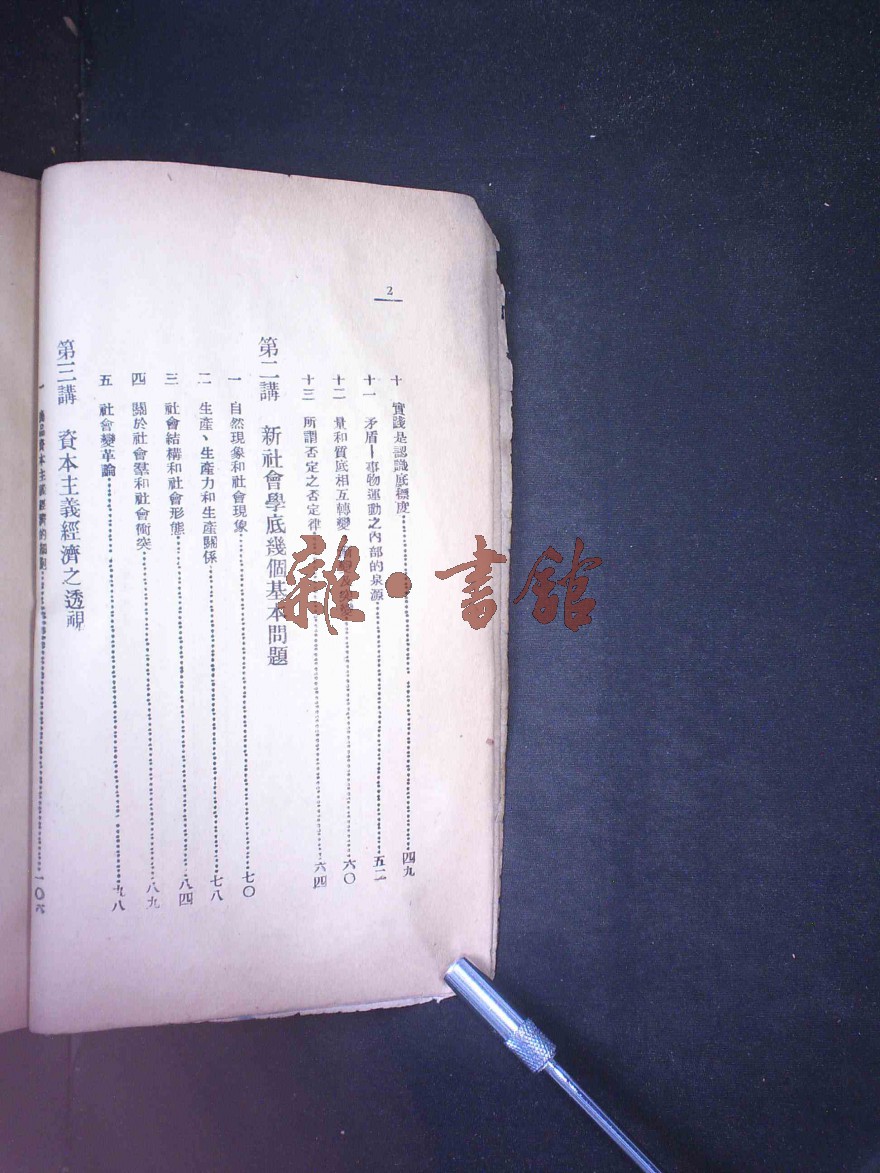 2
十 實踐是認識底標度……四九
十一 矛盾—事物運動之內部的泉源……五二
十二 量和質底相互轉變……六〇
十三 所謂否定之否定律……六四
第二講 新社會學底幾個基本問題
一 自然現象和社會現象……七〇
二 生產、生產力和生產關係……七八
三 社會結構和社會形態……八四
四 關於社會羣和社會衝突……八九
五 社會變革論……九八
第三講 資本主義經濟之透視
一 資本主義經濟的……一〇六
雜·書館